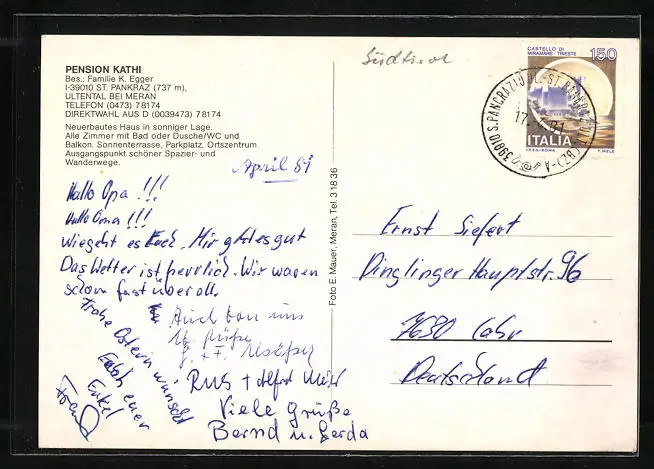 PENSION KATHI
Bes.: Familie K. Egger
I-39010 ST. PANKRAZ (737 m),
ULTENTAL BEI MERAN
TELEFON (0473) 78174
DIREKTWAHL AUS D (0039473) 78174
Neuerbautes Haus in sonniger Lage.
Alle Zimmer mit Bad oder Dusche/WC und
Balkon. Sonnenterrasse, Parkplatz, Ortszentrum.
Ausgangspunkt schöner Spazier- und
Wanderwege.
April 81
Hallo Opa !!!
Hallo Oma !!!
Wie geht es Euch. Mir geht es gut
Das Wetter ist herrlich. Wir waren
schon fast überall.
Frohe Ostern wünscht
Euch euer
Enkel
Frank
Auch von uns
Viele Grüße
Bernd u. Gerda
Foto E. Mauer, Meran, Tel. 31836
Südtirol
CASTELLO DI
MIRAMARE - TRIESTE
150
ITALIA
I.P.Z.S.-ROMA
T. MELE
39010 S. PANCRAZIO
(BZ)-A
Ernst Siefert
Dinglinger Hauptstr. 96
7630 Lahr
Deutschland